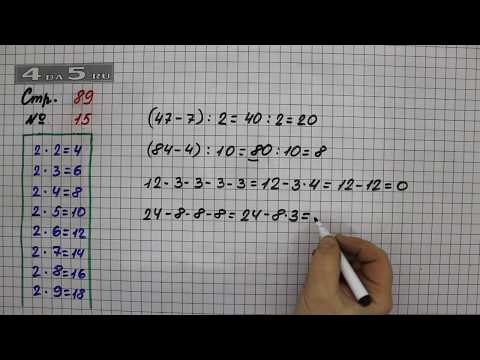 4 DA 5 RU
Стр. 89
№ 15
2 · 2 = 4
2 · 3 = 6
2 · 4 = 8
2 · 5 = 10
2 · 6 = 12
2 · 7 = 14
2 · 8 = 16
2 · 9 = 18
(47 - 7) : 2 = 40 : 2 = 20
(84 - 4) : 10 = 80 : 10 = 8
12 - 3 - 3 - 3 - 3 = 12 - 3 · 4 = 12 - 12 = 0
24 - 8 - 8 - 8 = 24 - 8 · 3 =